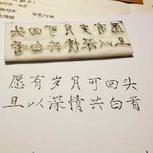 愿有岁月可回头
且以深情共白首